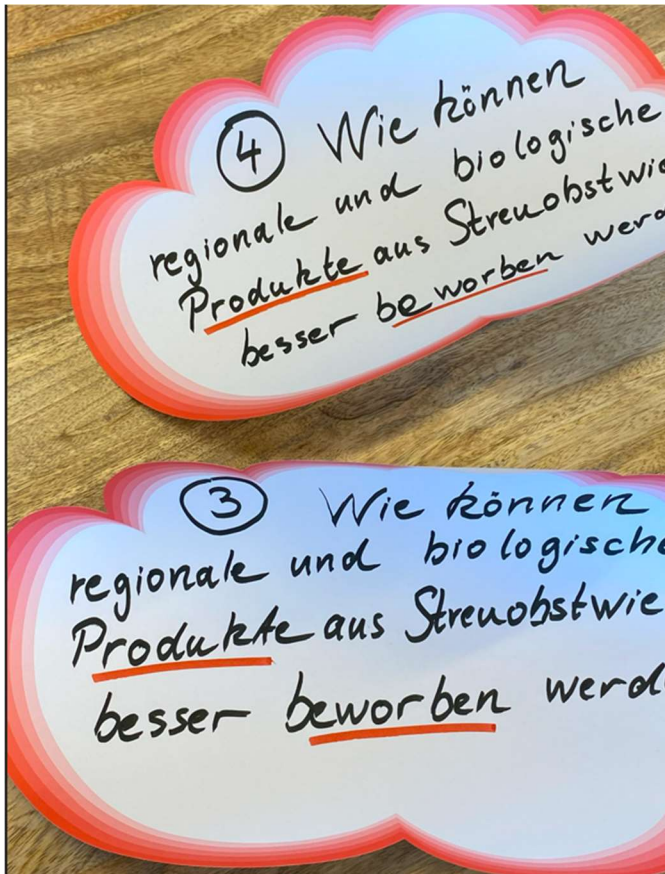 4 Wie können
regionale und biologische
Produkte aus Streuobstwie
besser beworben werd
3 Wie können
regionale und biologische
Produkte aus Streuobstwie
besser beworben werd